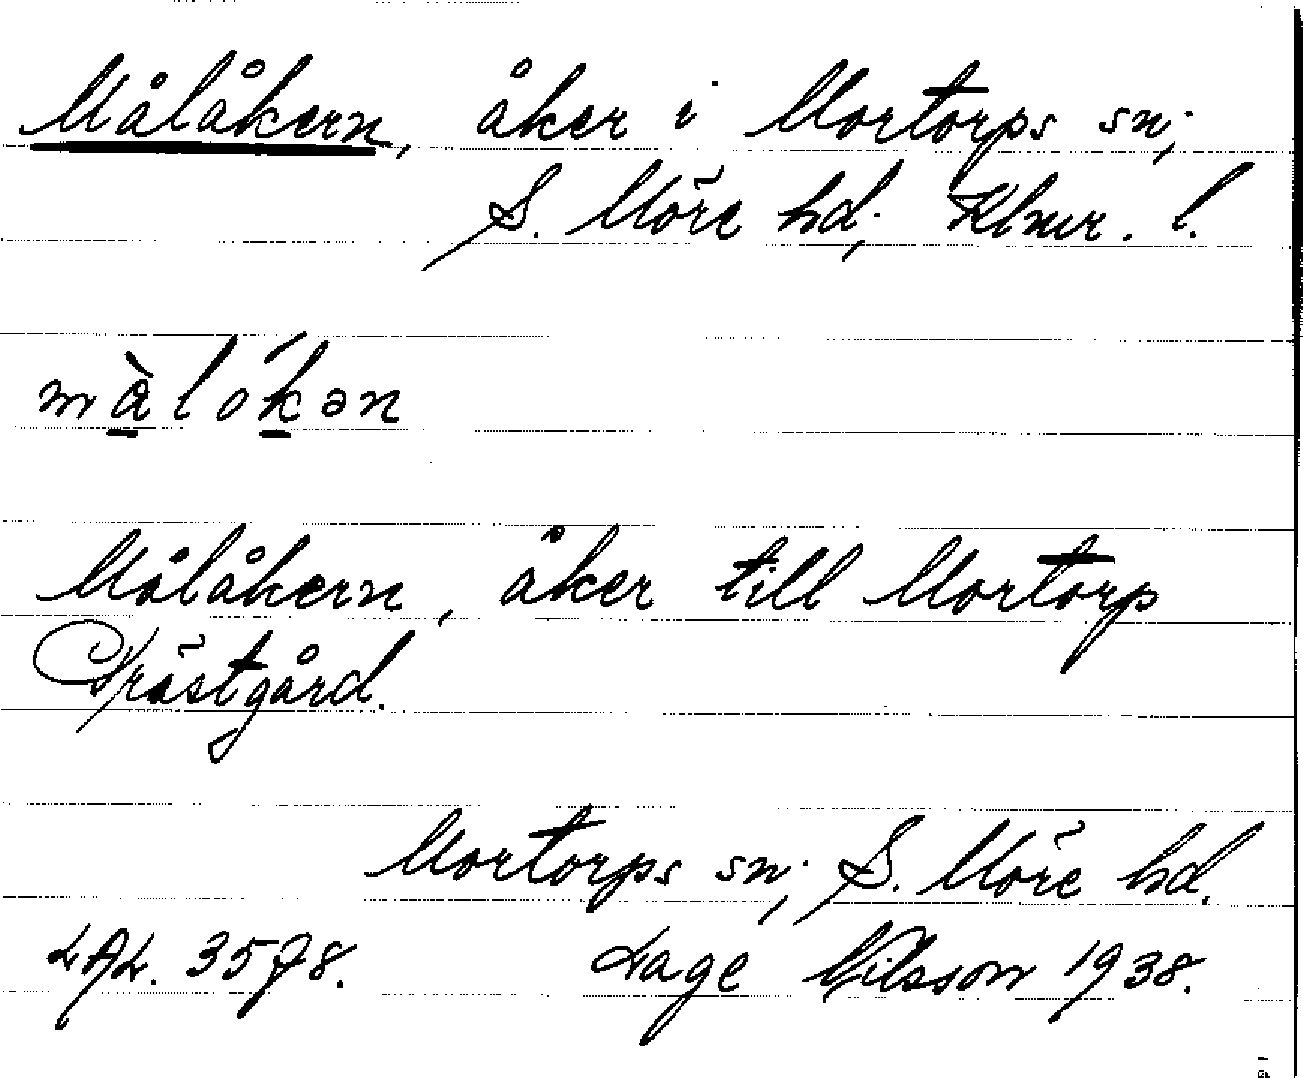 Målåkern, åker i Mortorps sn;
S. Möre hd; Klmr. l.
màlókən
Målåkern, åker till Mortorp
Prästgård.
Mortorps sn; S. Möre hd.
LAL. 3578. Lage Nilsson 1938.